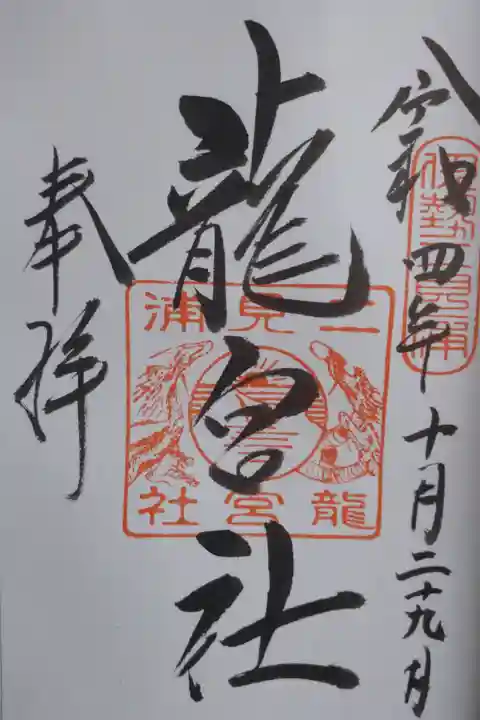 令和四年十月二十九日
伊勢二見浦
龍宮社
二見浦
龍宮社
奉拝